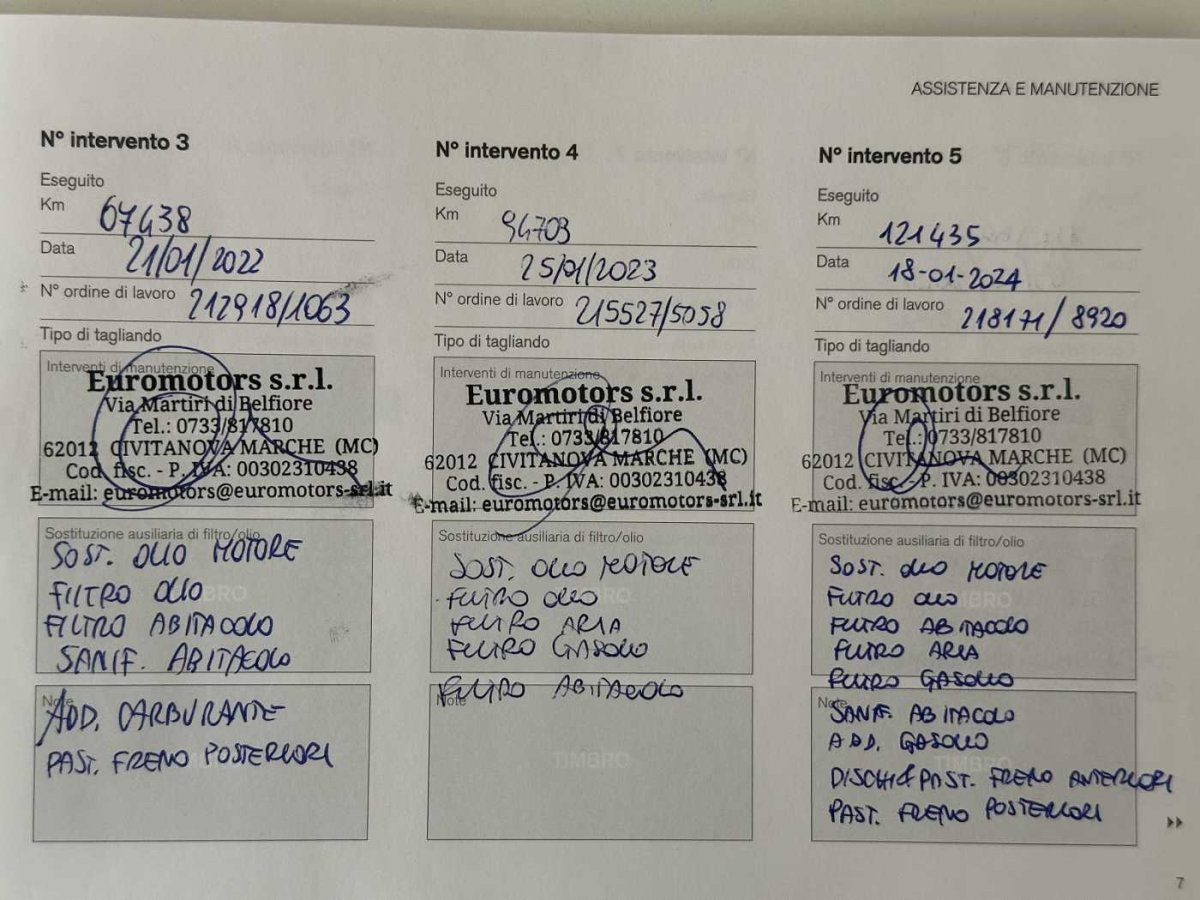 ASSISTENZA E MANUTENZIONE
N° intervento 3
Eseguito
Km 67438
Data 21/01/2022
N° ordine di lavoro 212918/1063
Tipo di tagliando
Interventi di manutenzione
Euromotors s.r.l.
Via Martiri di Belfiore
Tel.: 0733/817810
62012 CIVITANOVA MARCHE (MC)
Cod. fisc. - P. IVA: 00302310438
E-mail: euromotors@euromotors-srl.it
Sostituzione ausiliaria di filtro/olio
SOST. OLIO MOTORE
FILTRO OLIO
FILTRO ABITACOLO
SANIF. ABITACOLO
Note
ADD. CARBURANTE
PAST. FRENO POSTERIORI
N° intervento 4
Eseguito
Km 94703
Data 25/01/2023
N° ordine di lavoro 215527/5058
Tipo di tagliando
Interventi di manutenzione
Euromotors s.r.l.
Via Martiri di Belfiore
Tel.: 0733/817810
62012 CIVITANOVA MARCHE (MC)
Cod. fisc. - P. IVA: 00302310438
E-mail: euromotors@euromotors-srl.it
Sostituzione ausiliaria di filtro/olio
SOST. OLIO MOTORE
FILTRO OLIO
FILTRO ARIA
FILTRO GASOLIO
FILTRO ABITACOLO
Note
TIMBRO
N° intervento 5
Eseguito
Km 121435
Data 18-01-2024
N° ordine di lavoro 218171/8920
Tipo di tagliando
Interventi di manutenzione
Euromotors s.r.l.
Via Martiri di Belfiore
Tel.: 0733/817810
62012 CIVITANOVA MARCHE (MC)
Cod. fisc. - P. IVA: 00302310438
E-mail: euromotors@euromotors-srl.it
Sostituzione ausiliaria di filtro/olio
SOST. OLIO MOTORE
FILTRO OLIO
TIMBRO
FILTRO ABITACOLO
FILTRO ARIA
FILTRO GASOLIO
Note
SANIF. ABITACOLO
ADD. GASOLIO
DISCHI & PAST. FRENO ANTERIORI
PAST. FRENO POSTERIORI
7